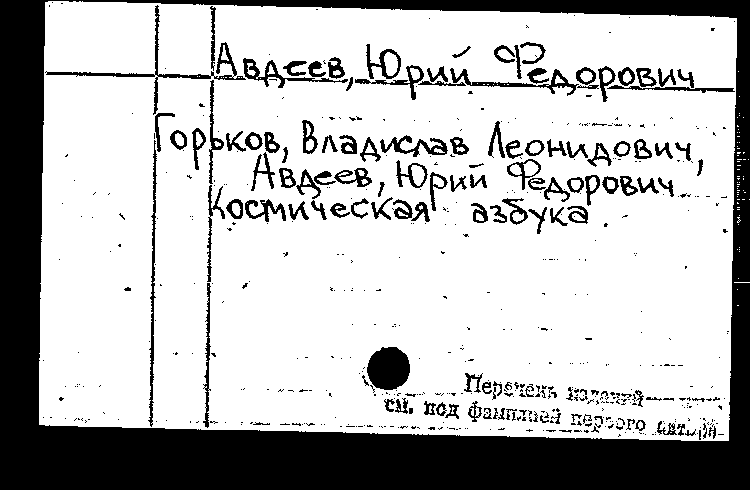 Авдеев, Юрий Федорович
Горьков, Владислав Леонидович,
Авдеев, Юрий Федорович
Космическая азбука.
Перечень изданий
см. под фамилией первого автора